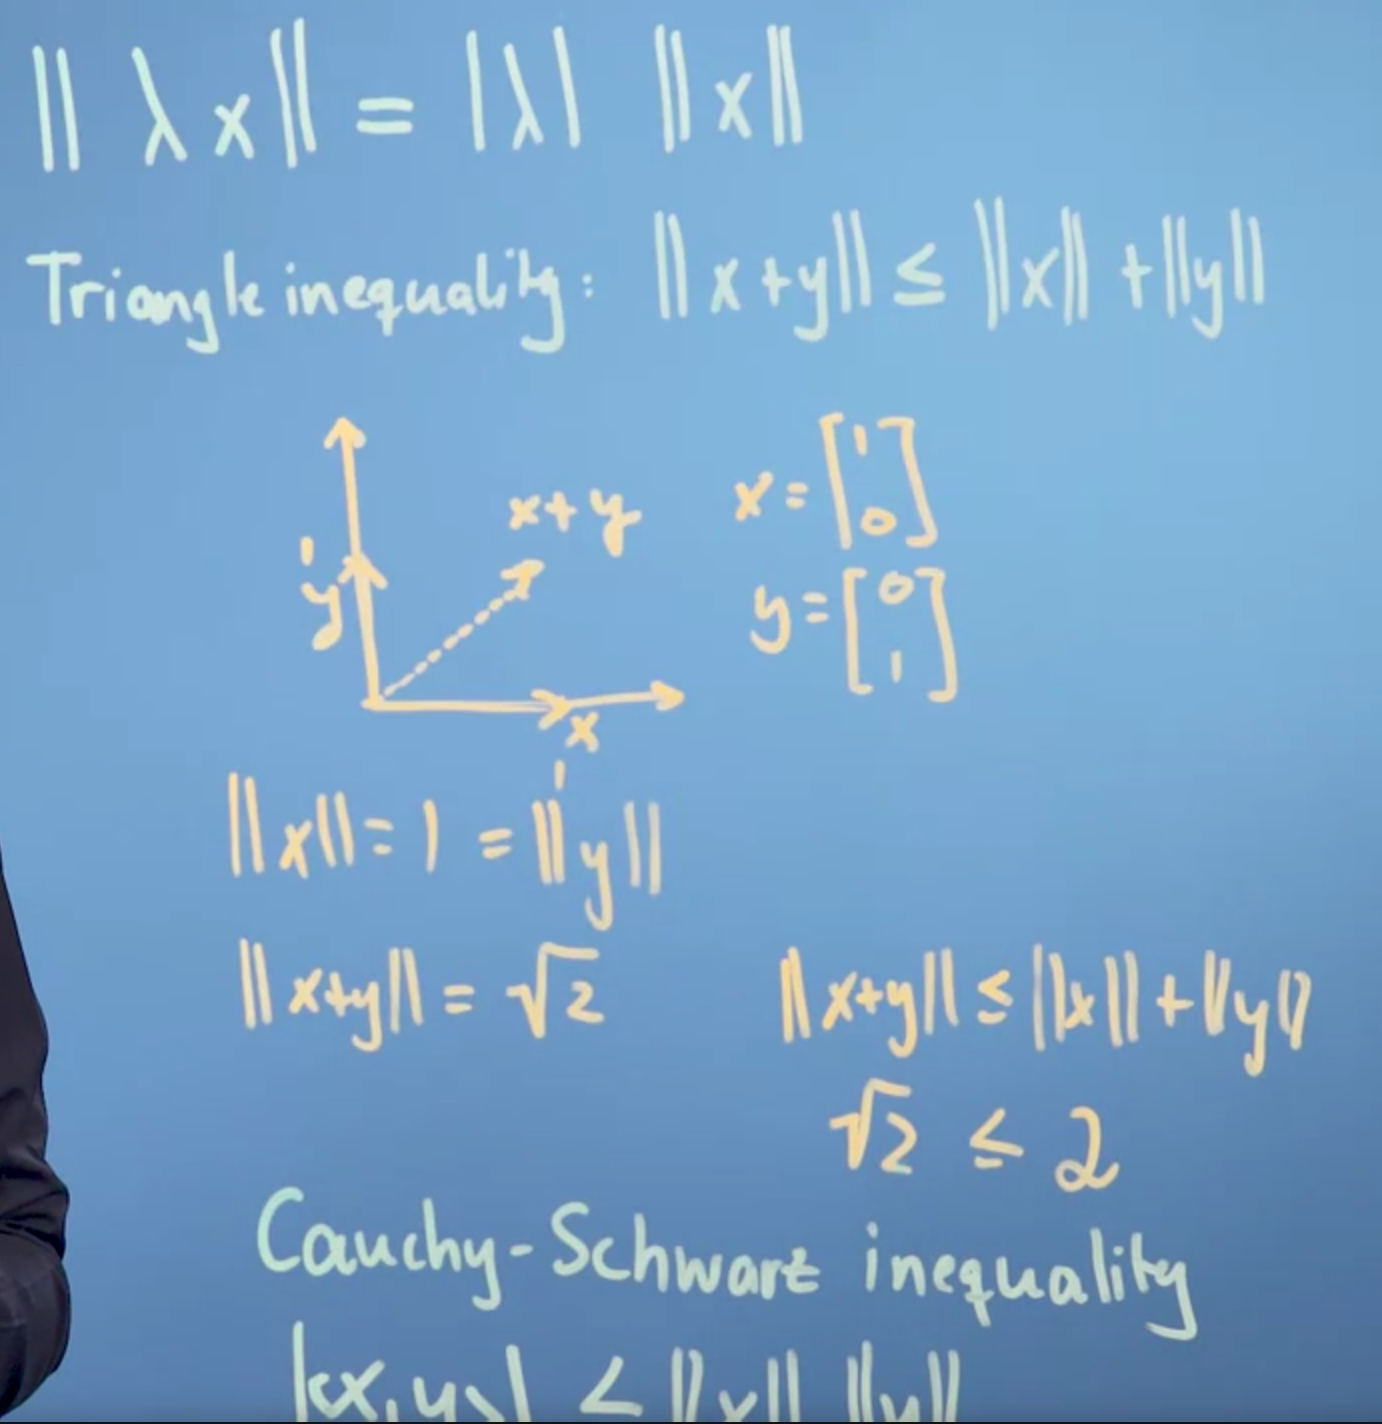 ‖ λ x ‖ = |λ| ‖x‖
Triangle inequality: ‖x+y‖ ≤ ‖x‖ + ‖y‖
x+y
x = [1 0]
1
y
y = [0 1]
x
1
‖x‖ = 1 = ‖y‖
‖x+y‖ = √2
‖x+y‖ ≤ ‖x‖ + ‖y‖
√2 ≤ 2
Cauchy-Schwarz inequality
|<x,y>| ≤ ‖x‖ ‖y‖